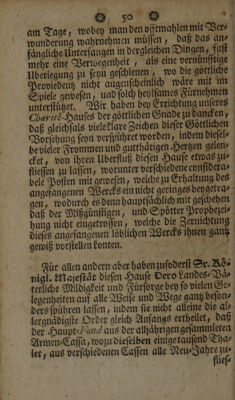 50
am Tage, wobey man den oftmahlen mit Ver-
wunderung wahrnehmen müssen, daß das an-
fängliche Unterfangen in dergleichen Dingen, fast
mehr eine Verwegenheit, als eine vernünftige
Uberlegung zu seyn geschienen, wo die göttliche
Providenz nicht augenscheinlich wäre mit im
Spiele gewesen, und solch heylsames Fürnehmen
unterstützet. Wir haben bey Errichtung unseres
Charité-Hauses der göttlichen Gnade zu dancken,
daß gleichfals viele klare Zeichen dieser Göttlichen
Vorsehung seyn verspühret worden, indem dieselbe
vieler Frommen und gutthätigen Hertzen gelen-
cket, von ihren Uberfluß diesen Hause etwas zu-
fliessen zu lassen, worunter verschiedene considera-
ble Posten mit gewesen, welche zu Erhaltung des
angefangenen Wercks ein nicht geringes beygetra-
gen, wodurch es denn hauptsächlich mit geschehen
daß der Mißgünstigen, und Spötter Prophezey-
hung nicht eingetroffen, welche die Zernichtung
dieses angefangenen löblichen Wercks ihnen gantz
gewiß vorstellen konten.
Für allen andern aber haben zuforderst Sr. Kö-
nigl. Majestät diesen Hause Dero Landes-Vä-
terliche Mildigkeit und Fürsorge bey so vielen Ge-
legenheiten auf alle Weise und Wege ganz beson-
ders spühren lassen, indem sie nicht alleine die al-
lergnädigste Order gleich Anfangs ertheilet, daß
der Haupt-Fond aus der alljährigen gesammleten
Armen-Cassa, wozu dieselben einige tausend Tha-
ler, aus verschiedenen Cassen alle Neu-Jahre zu-
flies-